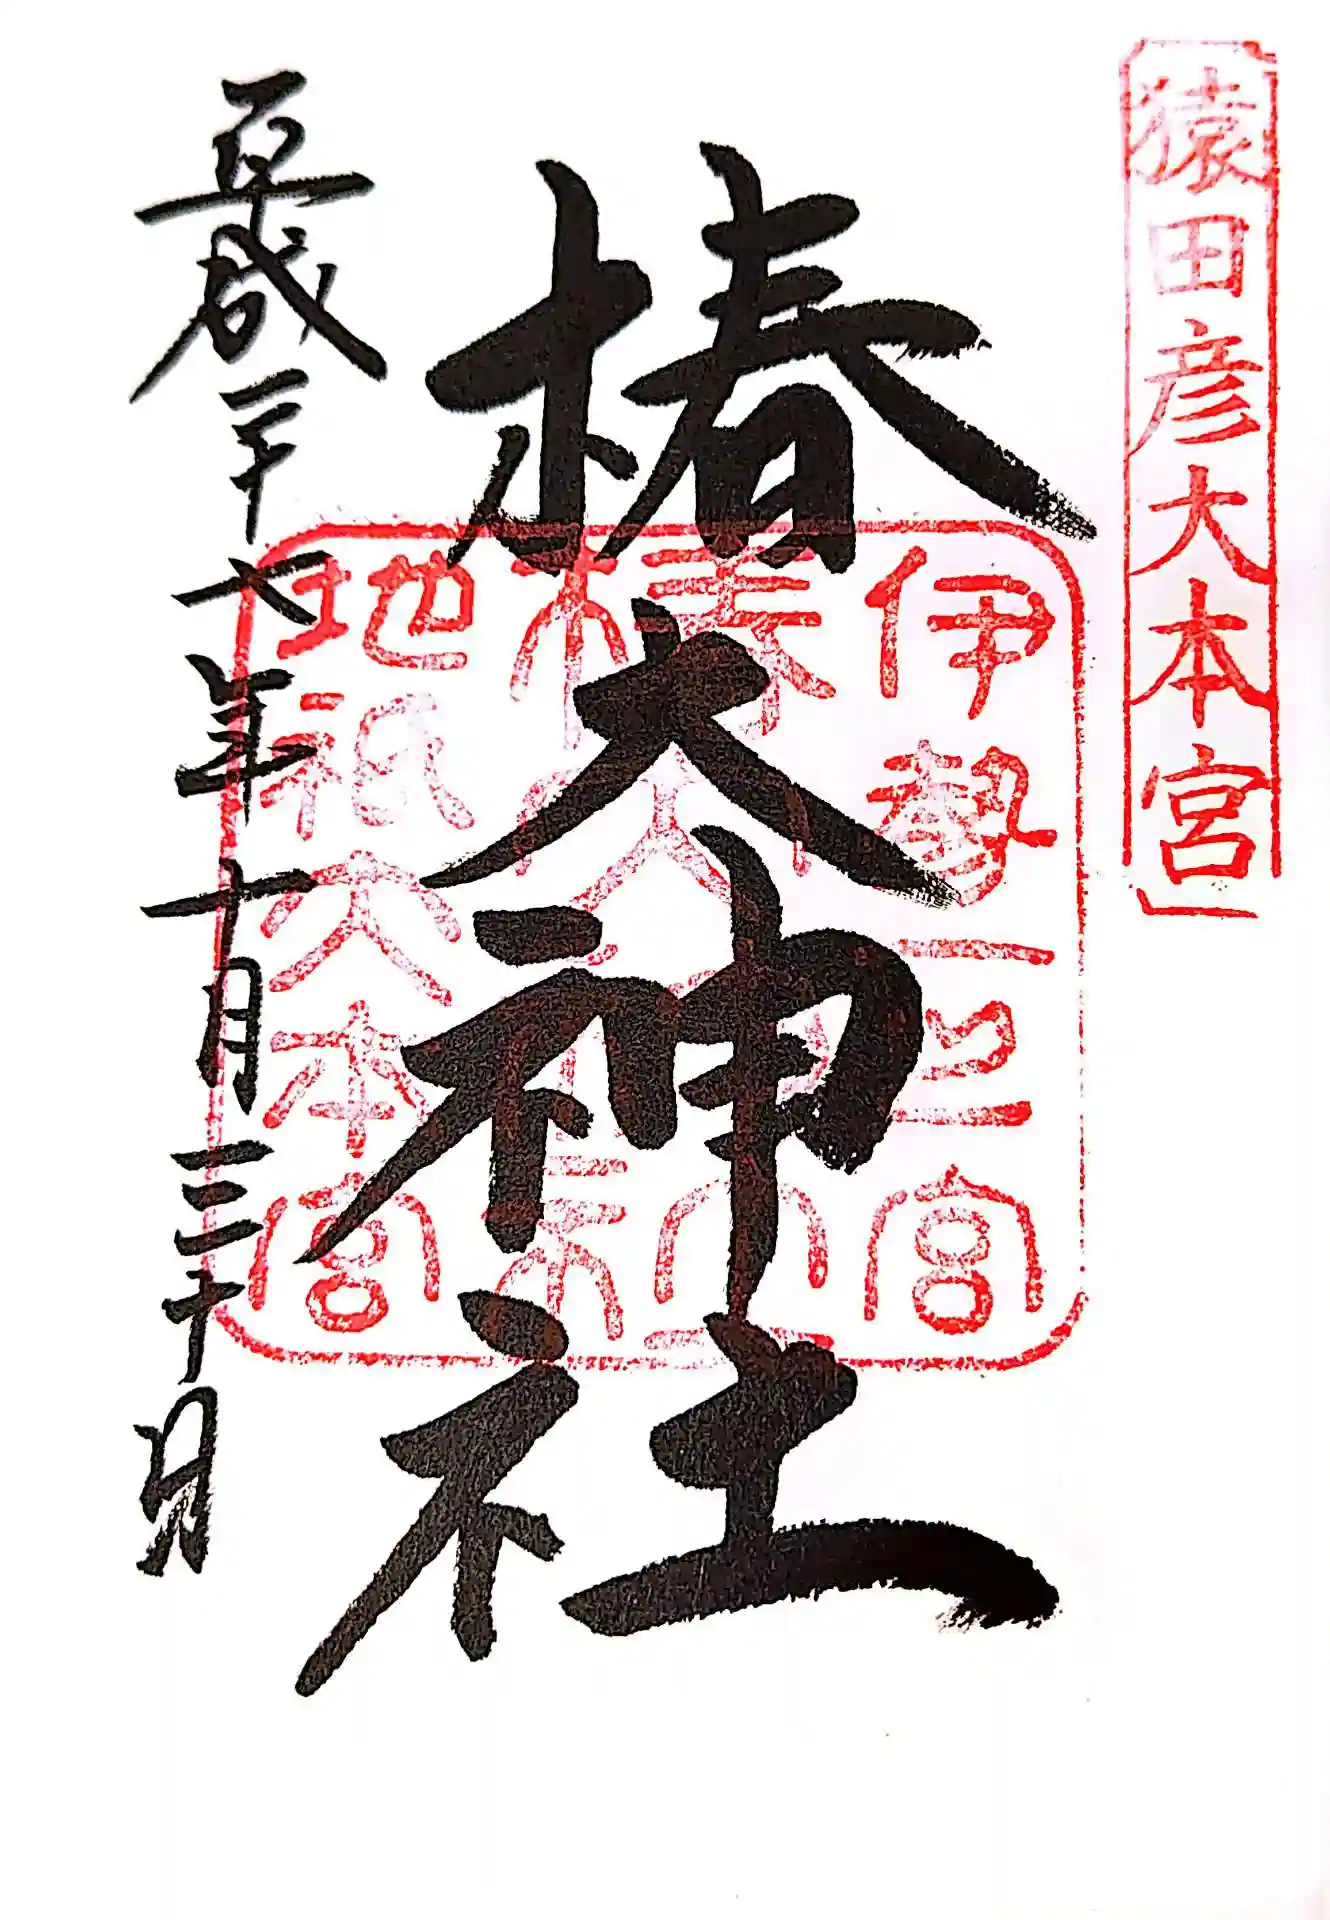 猿田彦大本宮
椿大神社
伊勢一之宮
地祇大本宮
平成二十七年十月三十日